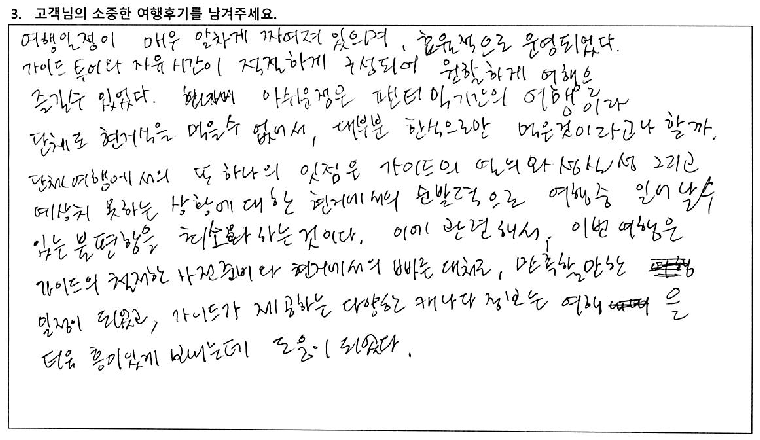 3. 고객님의 소중한 여행후기를 남겨주세요.
여행일정이 매우 알차게 짜여져 있으며, 효율적으로 운영되었다.
가이드 투어와 자유시간이 적절하게 구성되어 원활하게 여행을
즐길수 있었다. 아쉬운점은 기간의 여행이라
단체로 현지식을 먹을수 없어서, 대부분 한식으로만 먹은것이라고나 할까.
단체여행에서의 또 하나의 잇점은 가이드의 열의와 성실성 그리고
예상치 못하는 상황에 대한 현지에서의 순발력으로 여행중 일어날수
있는 불편함을 최소화 하는것이다. 이에 관련해서, 이번 여행은
가이드의 철저한 사전준비와 현지에서의 빠른 대처로, 만족할만한
일정이 되었고, 가이드가 제공하는 다양한 캐나다 정보는 여행을
더욱 흥미있게 보내는데 도움이 되었다.